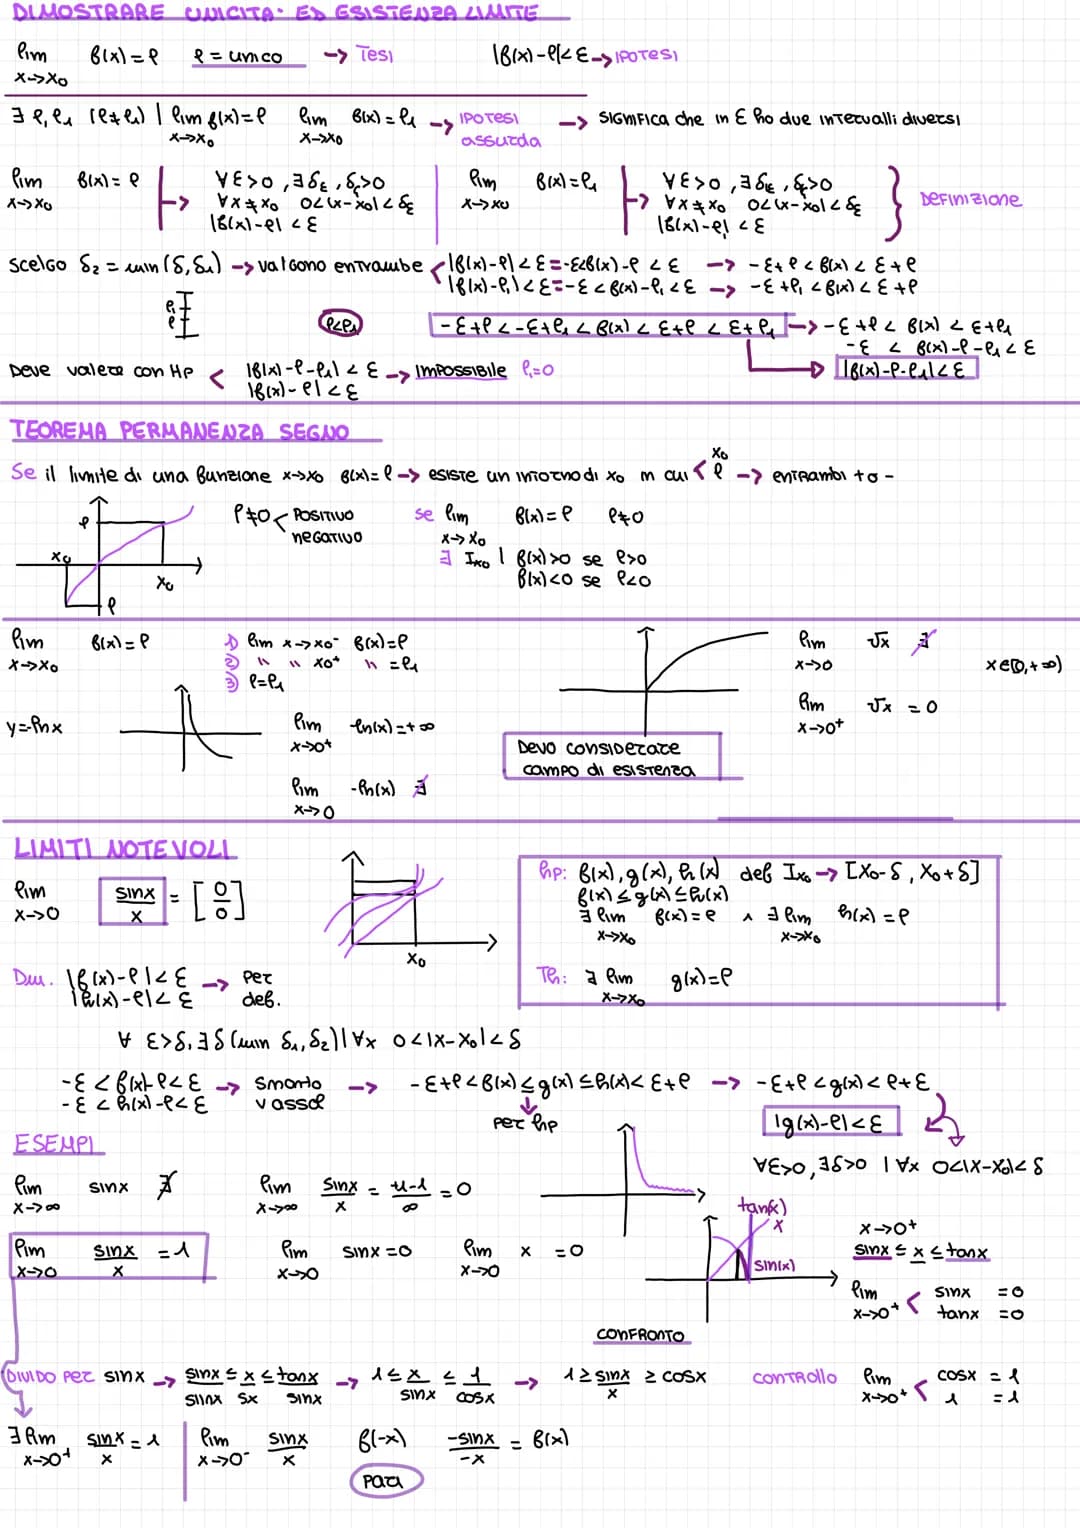 DIMOSTRARE UNICITA' ED ESISTENZA LIMITE
lim x->x₀ f(x)=ℓ ℓ=unico -> Tesi |f(x)-ℓ|<ε -> IPOTESI
∃ ℓ,ℓ₁ (ℓ≠ℓ₁) | lim x->x₀ f(x)=ℓ lim x->x₀ f(x)=ℓ₁ -> IPOTESI assurda -> SIGNIFICA che in ε ho due intervalli diversi
lim x->x₀ f(x)=ℓ -> ∀ε>0, ∃δε, δε>0
∀x≠x₀ 0<|x-x₀|<δε
|f(x)-ℓ|<ε
lim x->x₀ f(x)=ℓ₁ -> ∀ε>0, ∃δε, δε>0
∀x≠x₀ 0<|x-x₀|<δε
|f(x)-ℓ|<ε
Definizione
scelgo δ₂=min(δ,δ₁) -> valgono entrambe < |f(x)-ℓ|<ε=-ε<f(x)-ℓ<ε -> -ε+ℓ<f(x)<ε+ℓ
|f(x)-ℓ₁|<ε=-ε<f(x)-ℓ₁<ε -> -ε+ℓ₁<f(x)<ε+ℓ
ℓ₁
ℓ
ℓ<ℓ₁ -ε+ℓ<-ε+ℓ₁<f(x)<ε+ℓ<ε+ℓ₁ -> -ε+ℓ<f(x)<ε+ℓ₁
-ε < f(x)-ℓ-ℓ₁<ε
Deve valere con Hp < |f(x)-ℓ-ℓ₁|<ε -> IMPOSSIBILE ℓ₁=0 |f(x)-ℓ-ℓ₁|<ε
|f(x)-ℓ|<ε
TEOREMA PERMANENZA SEGNO
Se il limite di una funzione x->x₀ f(x)=ℓ -> esiste un intorno di x₀ in cui < x₀ ℓ -> entrambi + o -
ℓ
x₀
x₀
ℓ
ℓ≠0 < POSITIVO
negativo
se lim x->x₀ f(x)=ℓ ℓ≠0
∃ Ix₀ | f(x)>0 se ℓ>0
f(x)<0 se ℓ<0
lim x->x₀ f(x)=ℓ
1) lim x->x₀⁻ f(x)=ℓ
2) " " x₀⁺ " =ℓ₁
3) ℓ=ℓ₁
lim x->0 √x ∄ x∈[0,+∞)
lim x->0⁺ √x = 0
y=-lnx
lim x->0⁺ -ln(x)=+∞
lim x->0 -ln(x) ∄
Devo considerare
campo di esistenza
LIMITI NOTEVOLI
lim x->0 sinx/x = [0/0]
x₀
hp: f(x), g(x), h(x) def Ix₀ -> [x₀-δ, x₀+δ]
f(x)≤g(x)≤h(x)
∃ lim x->x₀ f(x)=ℓ ∧ ∃ lim x->x₀ h(x)=ℓ
Th: ∃ lim x->x₀ g(x)=ℓ
Dim. |f(x)-ℓ|<ε -> per
|h(x)-ℓ|<ε def.
∀ ε>δ, ∃δ(min δ₁,δ₂)|∀x 0<|x-x₀|<δ
-ε<f(x)-ℓ<ε -> smonto -> -ε+ℓ<f(x)≤g(x)≤h(x)<ε+ℓ -> -ε+ℓ<g(x)<ℓ+ε
-ε<h(x)-ℓ<ε
per hp
|g(x)-ℓ|<ε
∀ε>0, ∃δ>0 | ∀x 0<|x-x₀|<δ
ESEMPI
lim x->∞ sinx ∄
lim x->∞ sinx/x = =0
lim x->0 sinx/x = 1
lim x->0 sinx=0
lim x->0 x =0
tan(x)
x
sin(x)
x->0⁺
sinx ≤ x ≤ tanx
lim x->0⁺ < sinx =0
tanx =0
CONFRONTO
DIVIDO PER sinx -> sinx/sinx ≤ x/sx ≤ tanx/sinx -> 1≤x/sinx ≤ 1/cosx -> 1≥sinx/x ≥ cosx
CONTROLLO lim x->0⁺ < cosx = 1
1 = 1
∃ lim x->0⁺ sinx/x = 1
lim x->0⁻ sinx/x f(-x) -sinx/-x = f(x)
pari